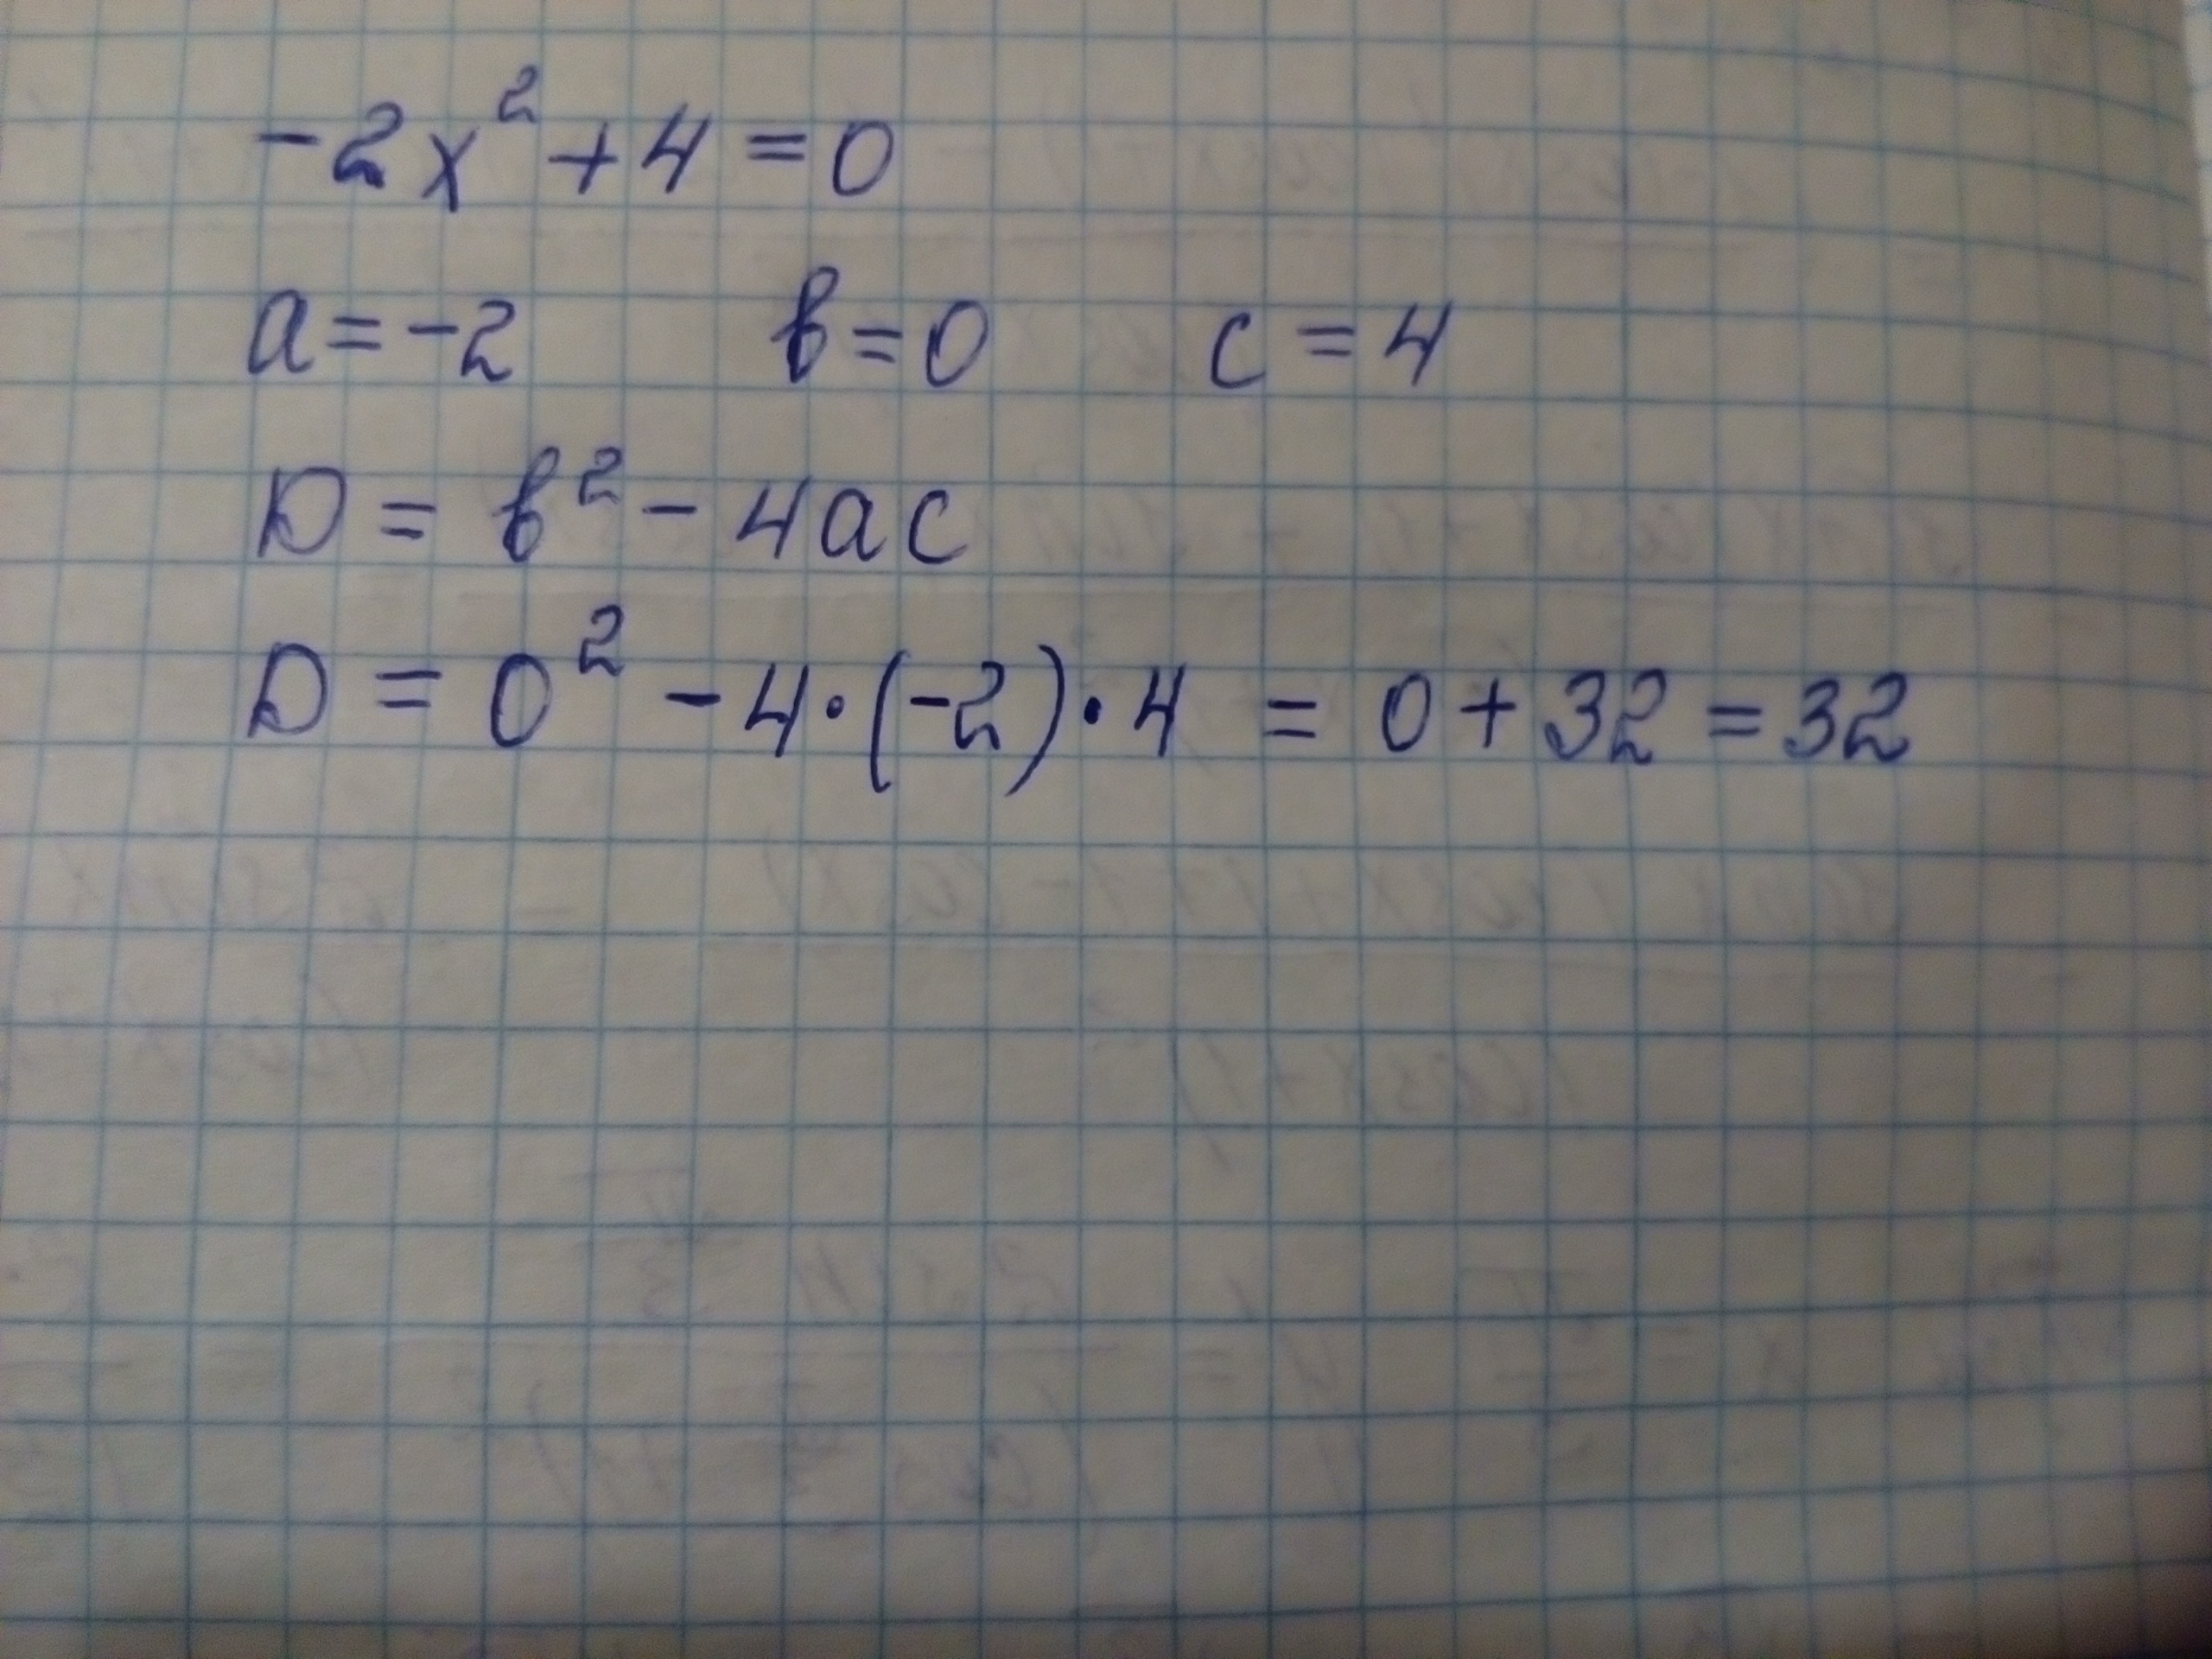 -2x²+4=0
a=-2 в=0 c=4
D=в²-4ac
D=0²-4·(-2)·4=0+32=32